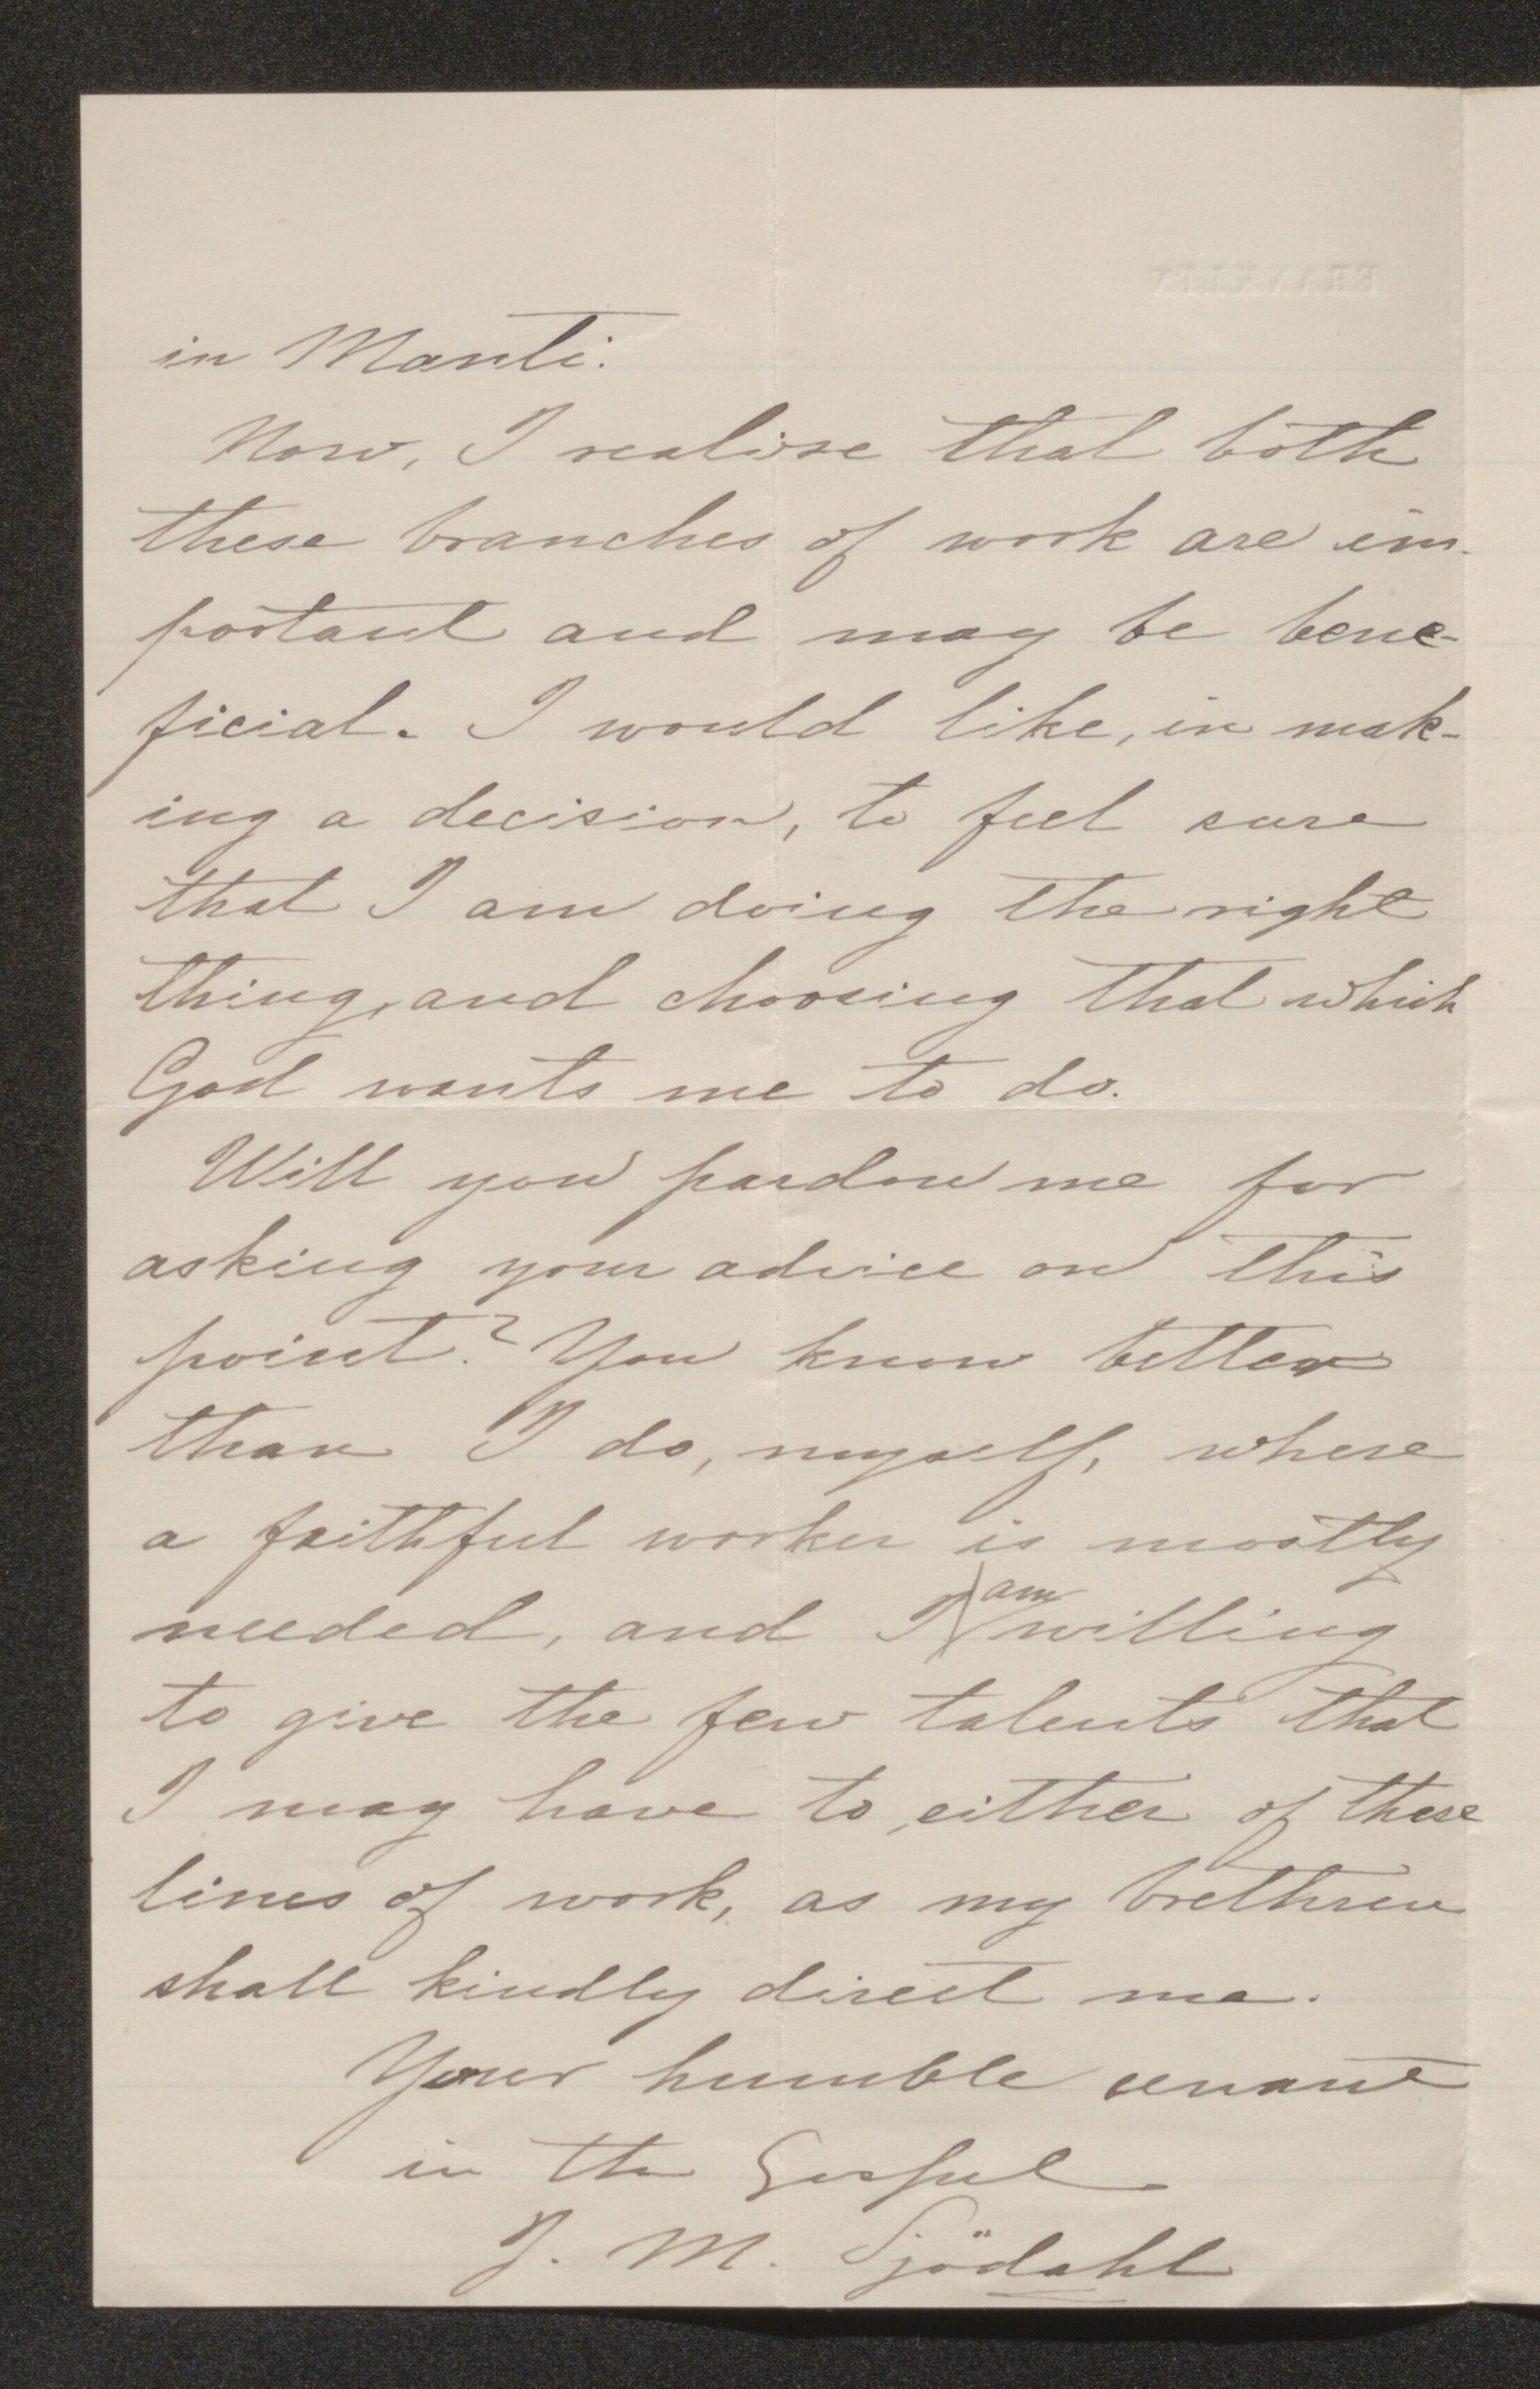 FRANKLIN
in Manti.
Now, I realise that both
these branches of work are im-
portant and may be bene-
ficial. I would like, in mak-
ing a decision, to feel sure
that I am doing the right
thing, and choosing that which
God wants me to do.
Will you pardon me for
asking your advice on this
point? You know better
than I do, myself, where
a faithful worker is mostly
needed, and I am willing
to give the few talents that
I may have to either of these
lines of work, as my brethren
shall kindly direct me.
Your humble servant
in the Gospel
J. M. Sjödahl